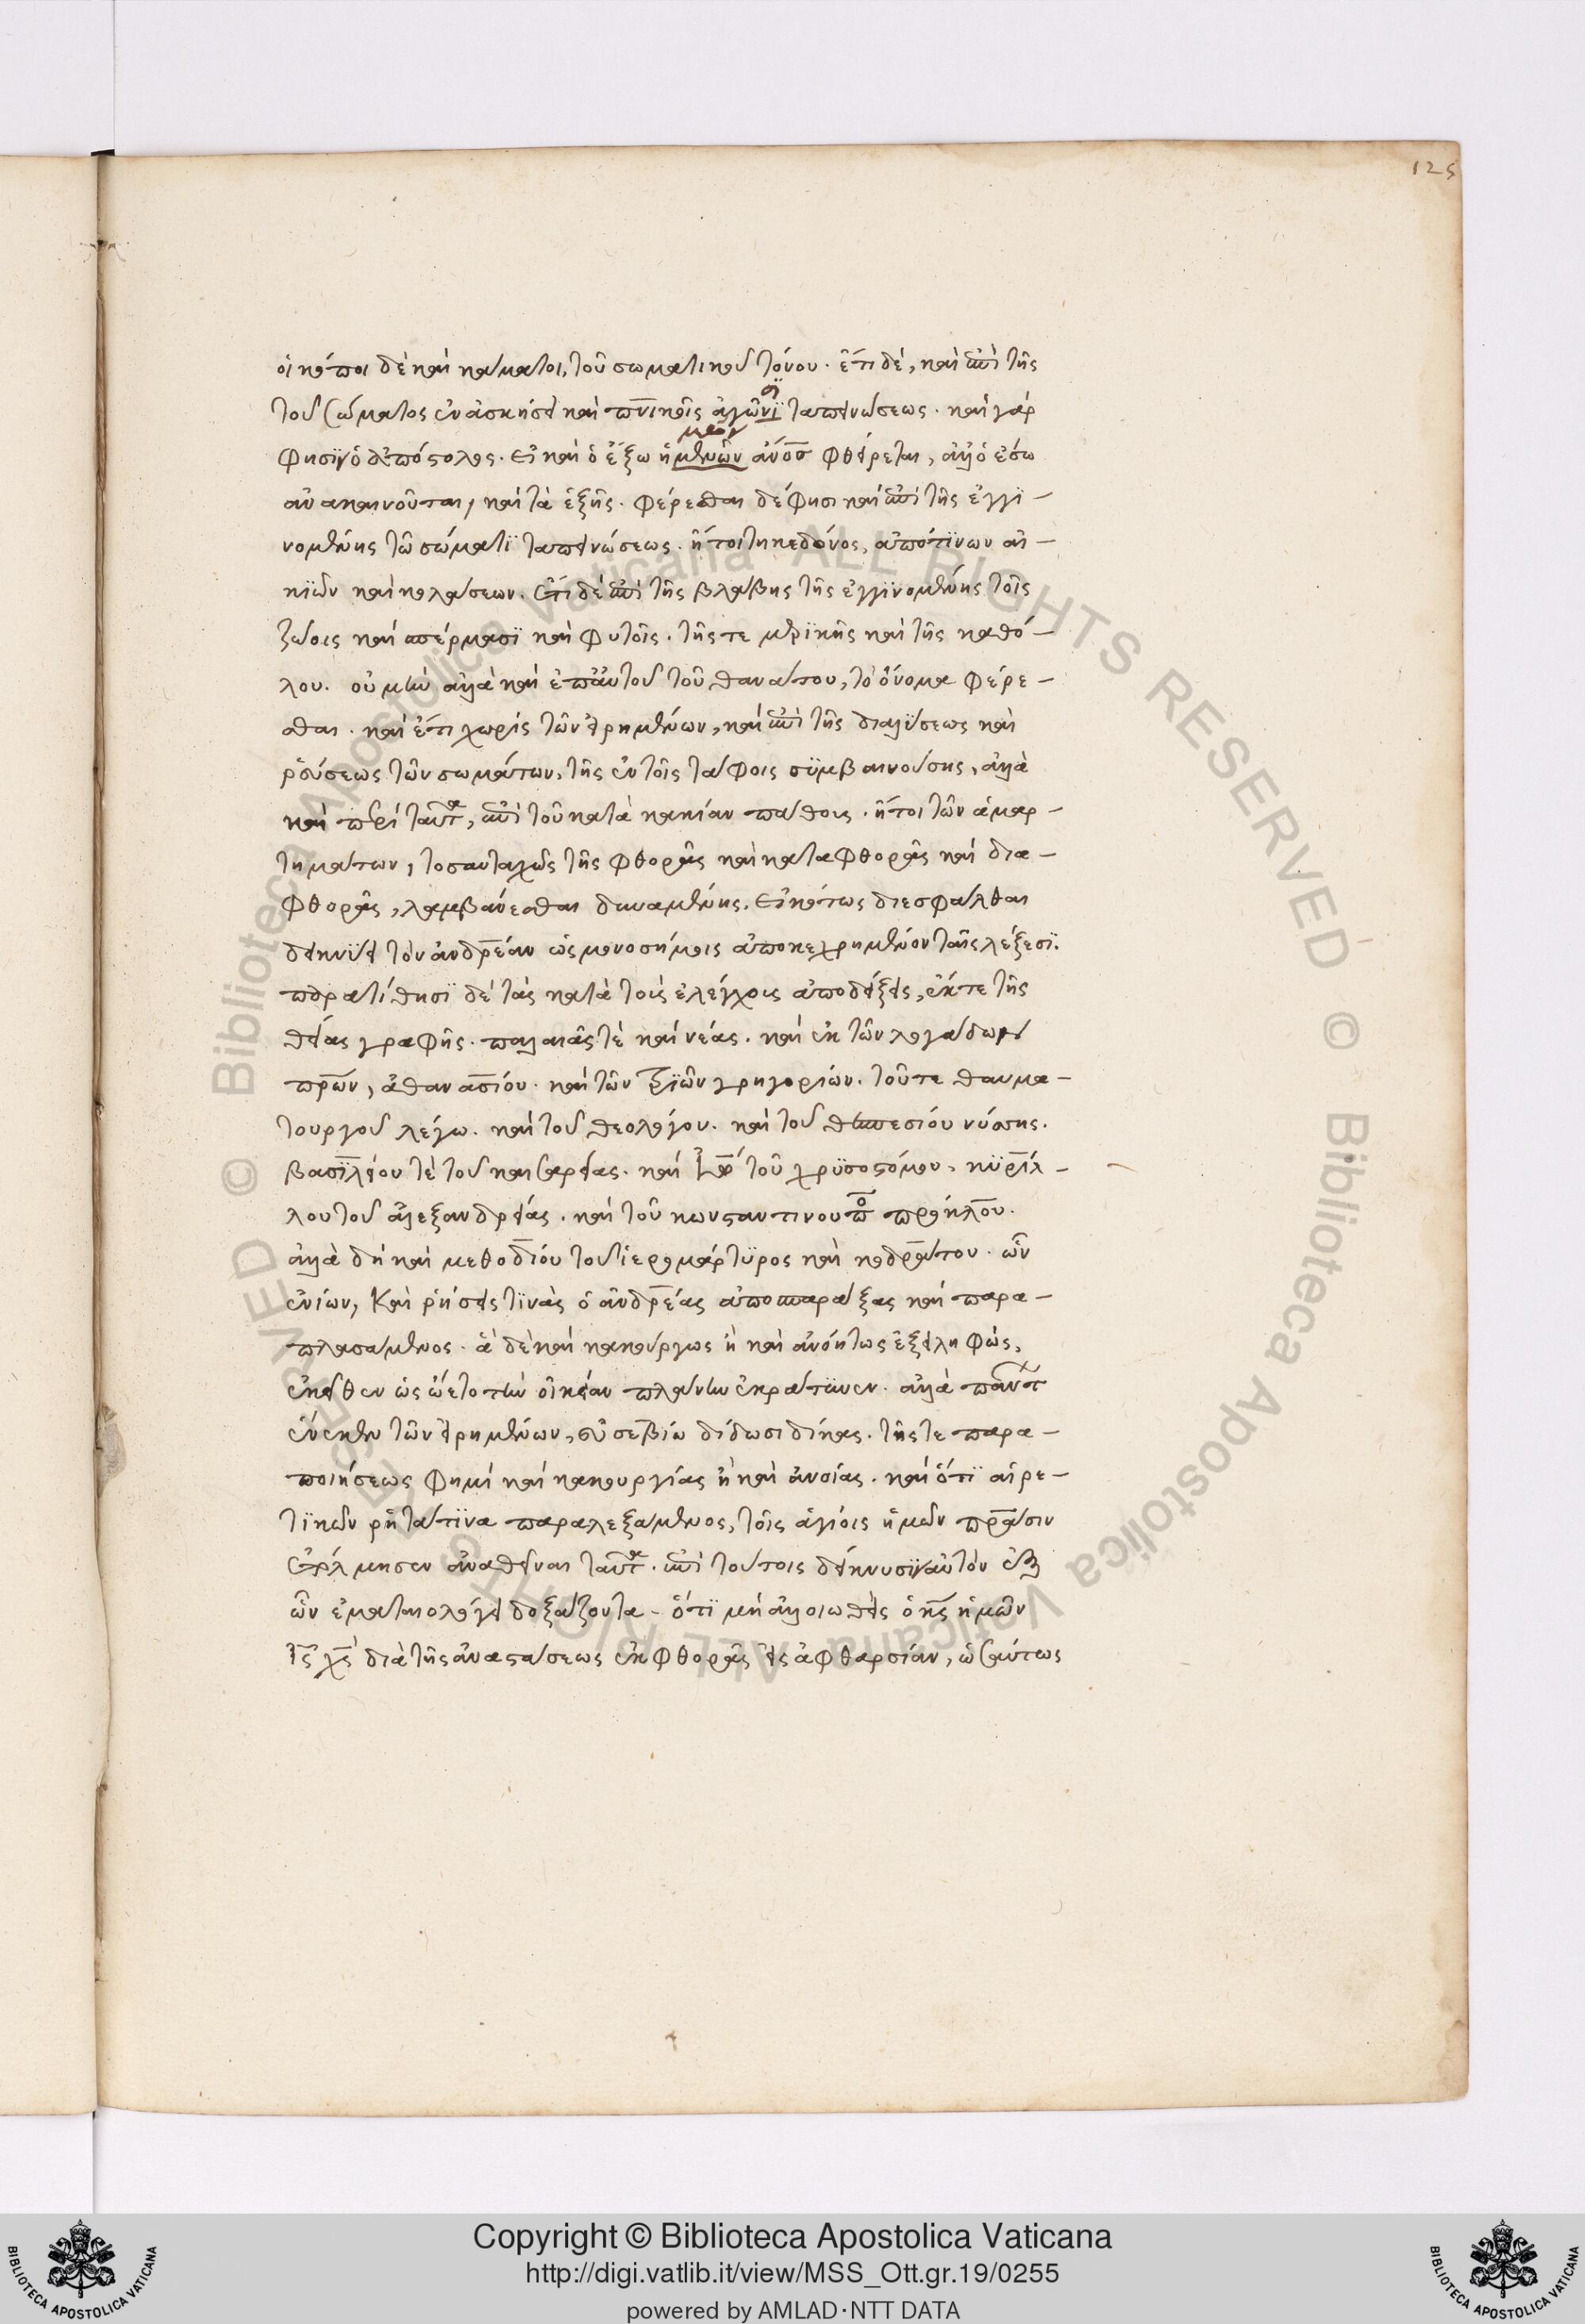 125
οἱ κόποι δὲ καὶ κάματοι, τοῦ σωματικοῦ τόνου. ἔτι δέ, καὶ ἐπὶ τῆς
τοῦ σώματος ἐν ἀσκήσει καὶ πνικοῖς ἀγῶνϊ ταπεινώσεως. καὶ γάρ
φησϊν ὁ ἀπόστολος. εἰ καὶ ὁ ἔξω ἡμῶν ἄνος φθείρεται, ἀλλ' ὁ ἔσω
ἀνακαινοῦται, καὶ τὰ ἑξῆς. φέρεσθαι δέ φησι καὶ ἐπὶ τῆς ἐγγϊ-
νομένης τῶ σώματϊ ταπεινώσεως. ἤτοι τηκεδόνος, ἀπό τϊνων αἰ-
κϊῶν καὶ κολάσεων. ἔτϊ δὲ ἐπὶ τῆς βλάβης τῆς ἐγγϊνομένης τοῖς
ζώοις καὶ σπέρμασϊ καὶ φυτοῖς. τῆς τε μερϊκῆς καὶ τῆς καθό-
λου. οὐ μὴν ἀλλὰ καὶ ἐπ' αὐτοῦ τοῦ θανάτου, τὸ ὄνομα φέρε-
σθαι. καὶ ἔτι χωρὶς τῶν εἰρημένων, καὶ ἐπὶ τῆς διαλύσεως καὶ
ῥεύσεως τῶν σωμάτων, τῆς ἐν τοῖς τάφοις συμβαινούσης, ἀλλὰ
καὶ περὶ ταῦτα, ἐπὶ τοῦ κατὰ κακίαν πάθους. ἤτοι τῶν ἁμαρ-
τημάτων, τοσαυταχῶς τῆς φθορᾶς καὶ καταφθορᾶς καὶ δια-
φθορᾶς, λαμβάνεσθαι δυναμένης. εἰκότως διεσφάλθαι
δεικνύει τὸν ἀνδρέαν ὡς μονοσήμοις ἀποκεχρημένον ταῖς λέξεσϊ.
παρατίθησϊ δὲ τὰς κατὰ τοὺς ἐλέγχους ἀποδείξεις, ἔκ τε τῆς
θείας γραφῆς. παλαιᾶς τὲ καὶ νέας. καὶ ἐκ τῶν λογάδων
πρων, ἀθανασίου. καὶ τῶν τριῶν γρηγορίων. τοῦ τε θαυμα-
τουργοῦ λέγω. καὶ τοῦ θεολόγου. καὶ τοῦ θεσπεσίου νύσσης.
βασιλείου τὲ τοῦ καισαρείας. καὶ ἰω τοῦ χρϋσοστόμου, κϋρίλ-
λου τοῦ ἀλεξανδρείας. καὶ τοῦ κωνσταντινουπο πρόκλου.
ἀλλὰ δὴ καὶ μεθοδίου τοῦ ἱερομάρτϋρος καὶ κοδράτου. ὧν
ἐνίων, καὶ ῥήσεις τϊνὰς ὁ ἀνδρέας ἀποσπαράξας καὶ παρα-
πλασάμενος. ἃ δὲ καὶ κακούργως ἢ καὶ ἀνοήτως ἐξειληφώς,
ἐκεῖθεν ὡς ὤετο τὴν οἰκείαν πλάνην ἐκράτυνεν. ἀλλὰ πάντων
ἕνεκεν τῶν εἰρημένων, εὐσεβίω δίδωσι δίκας. τῆς τε παρα-
ποιήσεως φημὶ καὶ κακουργίας ἢ καὶ ἀνοίας. καὶ ὅτϊ αἱρε-
τϊκῶν ῥητά τϊνα παραλεξάμενος, τοῖς ἁγίοις ἡμῶν πράσιν
ἐτόλμησεν ἀναθεῖναι ταῦτα. ἐπὶ τούτοις δείκνυσϊν αὐτὸν ἐξ
ὧν ἐματαιολόγει δοξάζοντα. ὅτϊ μὴ ἀλλοιωθεὶς ὁ κς ἡμῶν
ις χς διὰ τῆς ἀναστάσεως ἐκ φθορᾶς εἰς ἀφθαρσίαν, ὡσαύτως
© Biblioteca Apostolica Vaticana ALL RIGHTS RESERVED
Copyright © Biblioteca Apostolica Vaticana
http://digi.vatlib.it/view/MSS_Ott.gr.19/0255
powered by AMLAD·NTT DATA
BIBLIOTECA APOSTOLICA VATICANA
BIBLIOTECA APOSTOLICA VATICANA